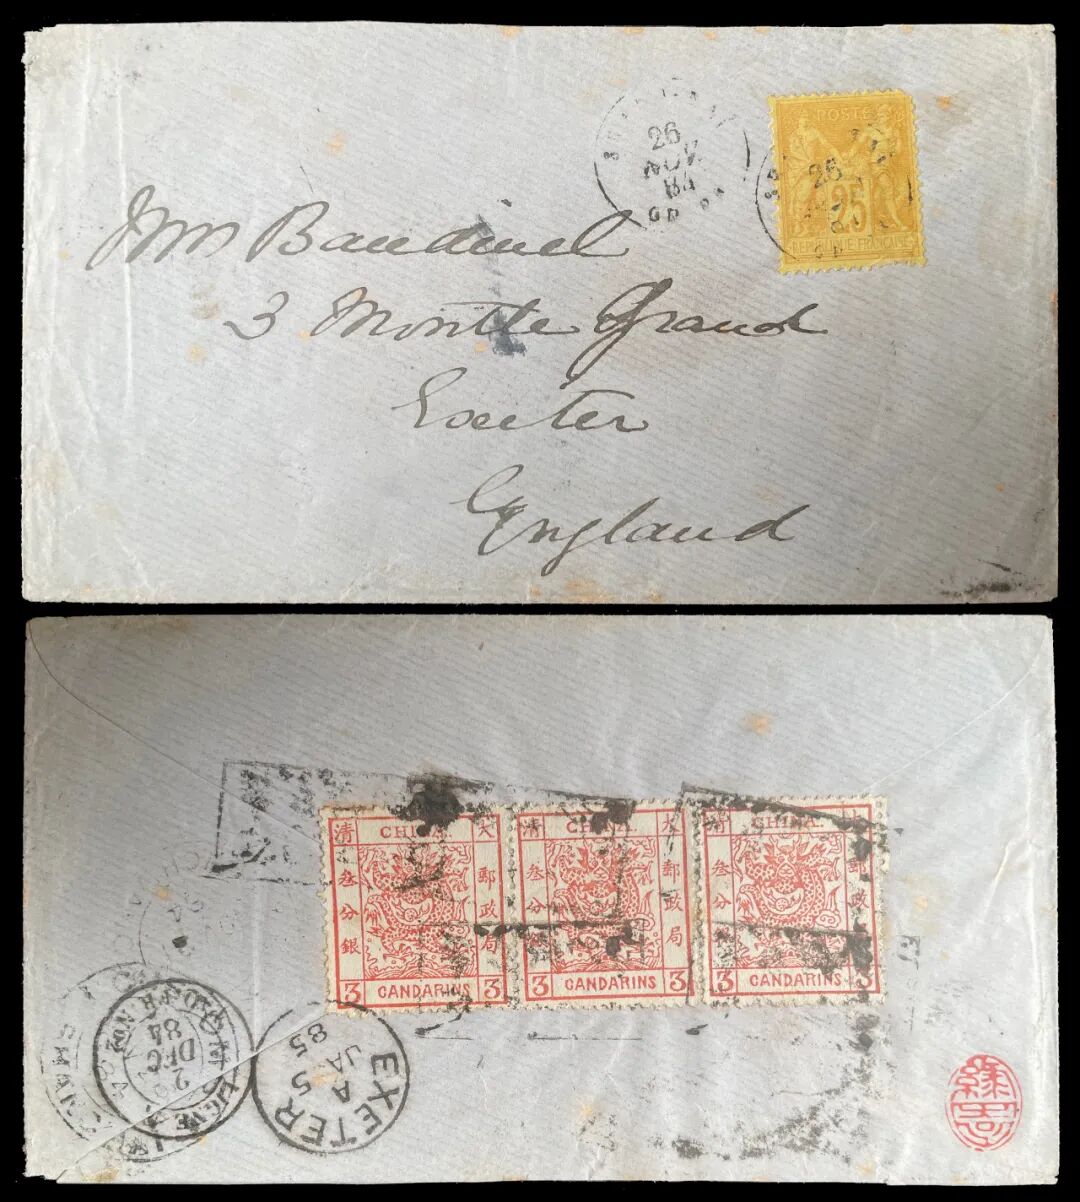 26
NOV
84
POSTE
26
25
REPUBLIQUE FRANÇAISE
Mrs Bandinel
3 Montle Grand
Exeter
England
清 CHINA. 大
叁分銀
郵政局
3 CANDARINS 3
清 CHINA. 大
叁分
郵政局
3 CANDARINS 3
CHINA.
郵政
3 CANDARINS 3
LIGNE N
2
DEC
84
EXETER
A
5
JA
85